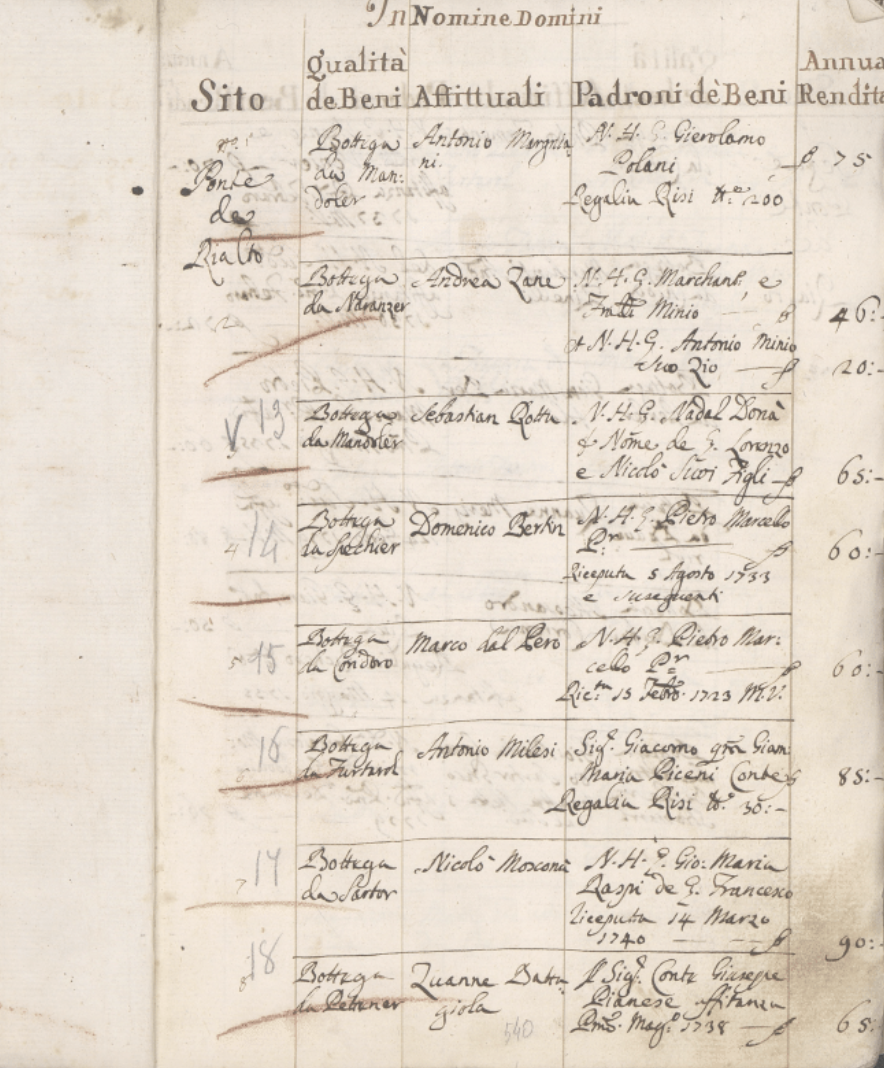 In Nomine Domini
Sito
Qualità
de Beni
Affittuali
Padroni dè Beni
Annua
Rendita
Nº 1
Ponte
de
Rialto
Bottega
da Man:
doler
Antonio Margnta
ni.
N. H. G. Gierolamo
Polani
Regalia Risi 200
75
2
Bottega
da Naranzer
Andrea Zane
N. H. G. Marchant. e
Fratti Minio
46:-
et N. H. G. Antonio Minio
suo Zio
20:-
V 13
3
Bottega
da Mandoler
Sebastian Rotta
N. H. G. Nadal Donà
Nome de G. Lorenzo
e Nicolò suoi Figli
65:-
4 14
Bottega
da Spechier
Domenico Bertin
N. H. G. Pietro Marcello
Pr:
60:-
Riceputa 5 Agosto 1733
e suseguenti
5 15
Bottega
da Condoro
Marco dal Pero
N. H. G. Pietro Mar:
cello Pr
60:-
Ric:ta 15 Febro. 1723 M.V.
6 16
Bottega
da Frutarol
Antonio Milesi
Sigr. Giacomo qm Giam
Maria Piceni Conte
85:-
Regalia Risi 30:-
7 17
Bottega
da Sartor
Nicolò Mosconà
N. H. G. Gio: Maria
Raspi de G. Francesco
Riceputa 14 Marzo
1740
90:-
8 18
Bottega
da Petener
Zuanne Battu
giola
Sigr. Conte Giuseppe
Pianese affitanza
Pmo. Magº 1738
65:-
540